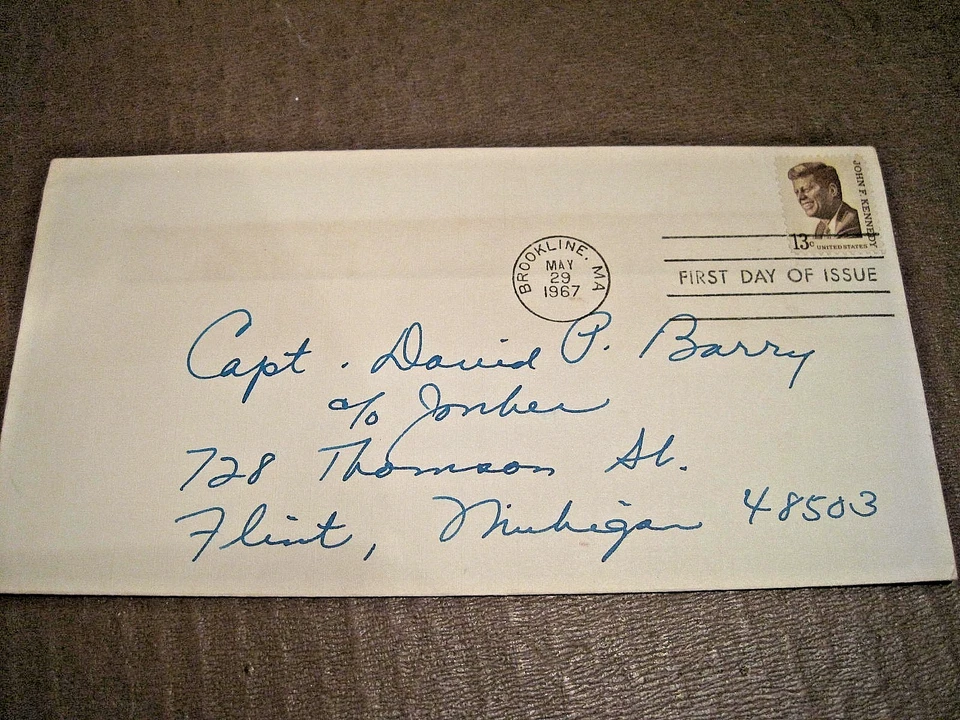 JOHN F. KENNEDY
13c UNITED STATES
BROOKLINE, MA
MAY
29
1967
FIRST DAY OF ISSUE
Capt. David P. Barry
c/o Jonker
728 Thomson St.
Flint, Michigan 48503